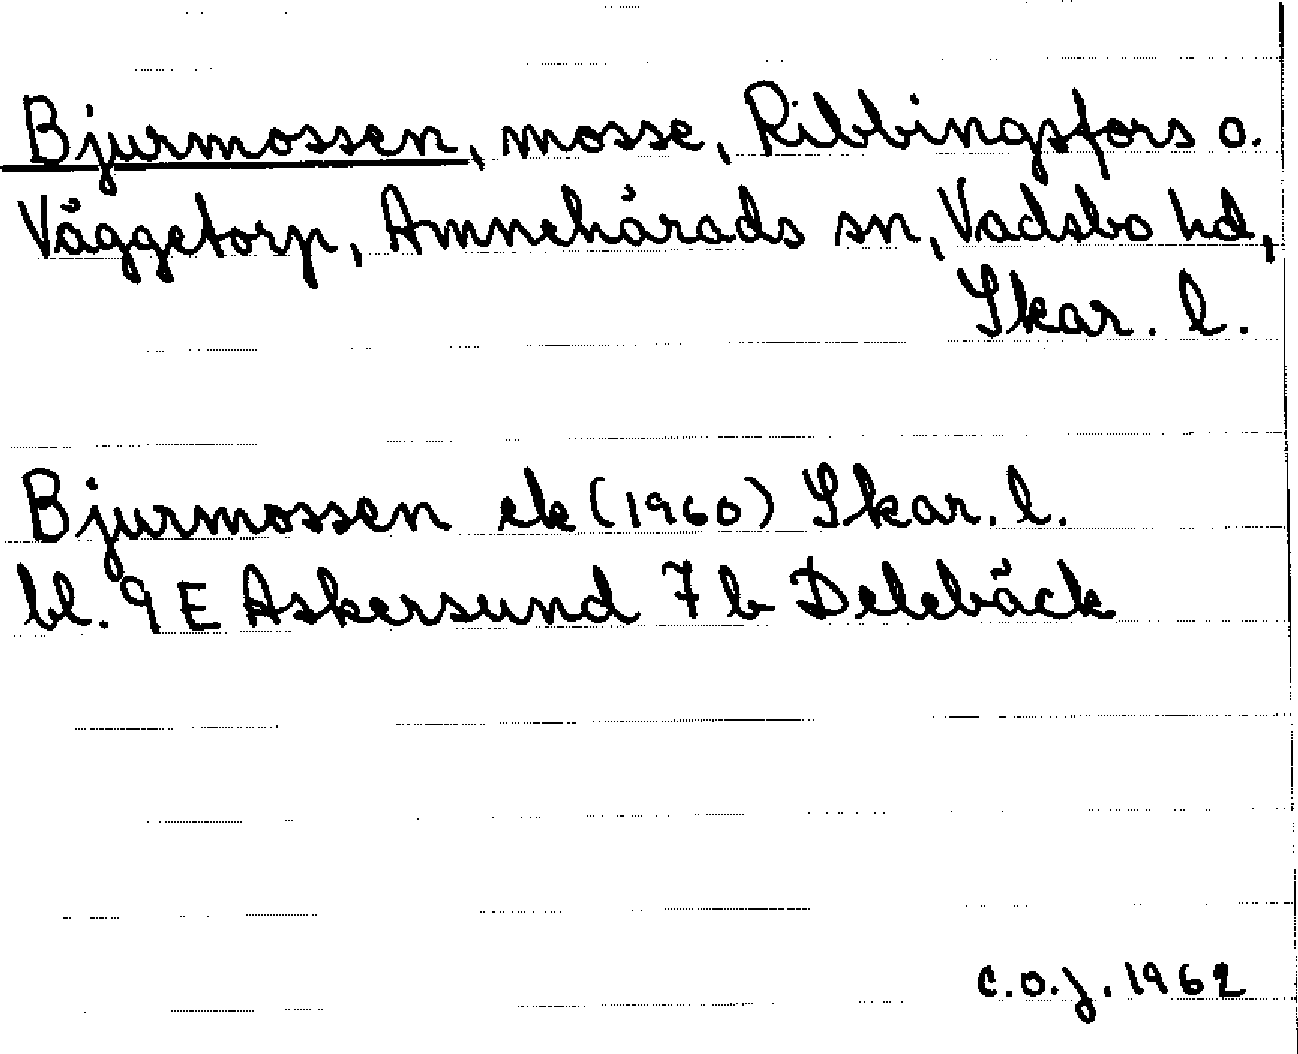 Bjurmossen, mosse, Ribbingsfors o.
Väggetorp, Amnehärads sn, Vadsbo hd,
Skar. l.
Bjurmossen ek (1960) Skar. l.
bl. 9 E Askersund 7 b Delebäck
C.O.J. 1962